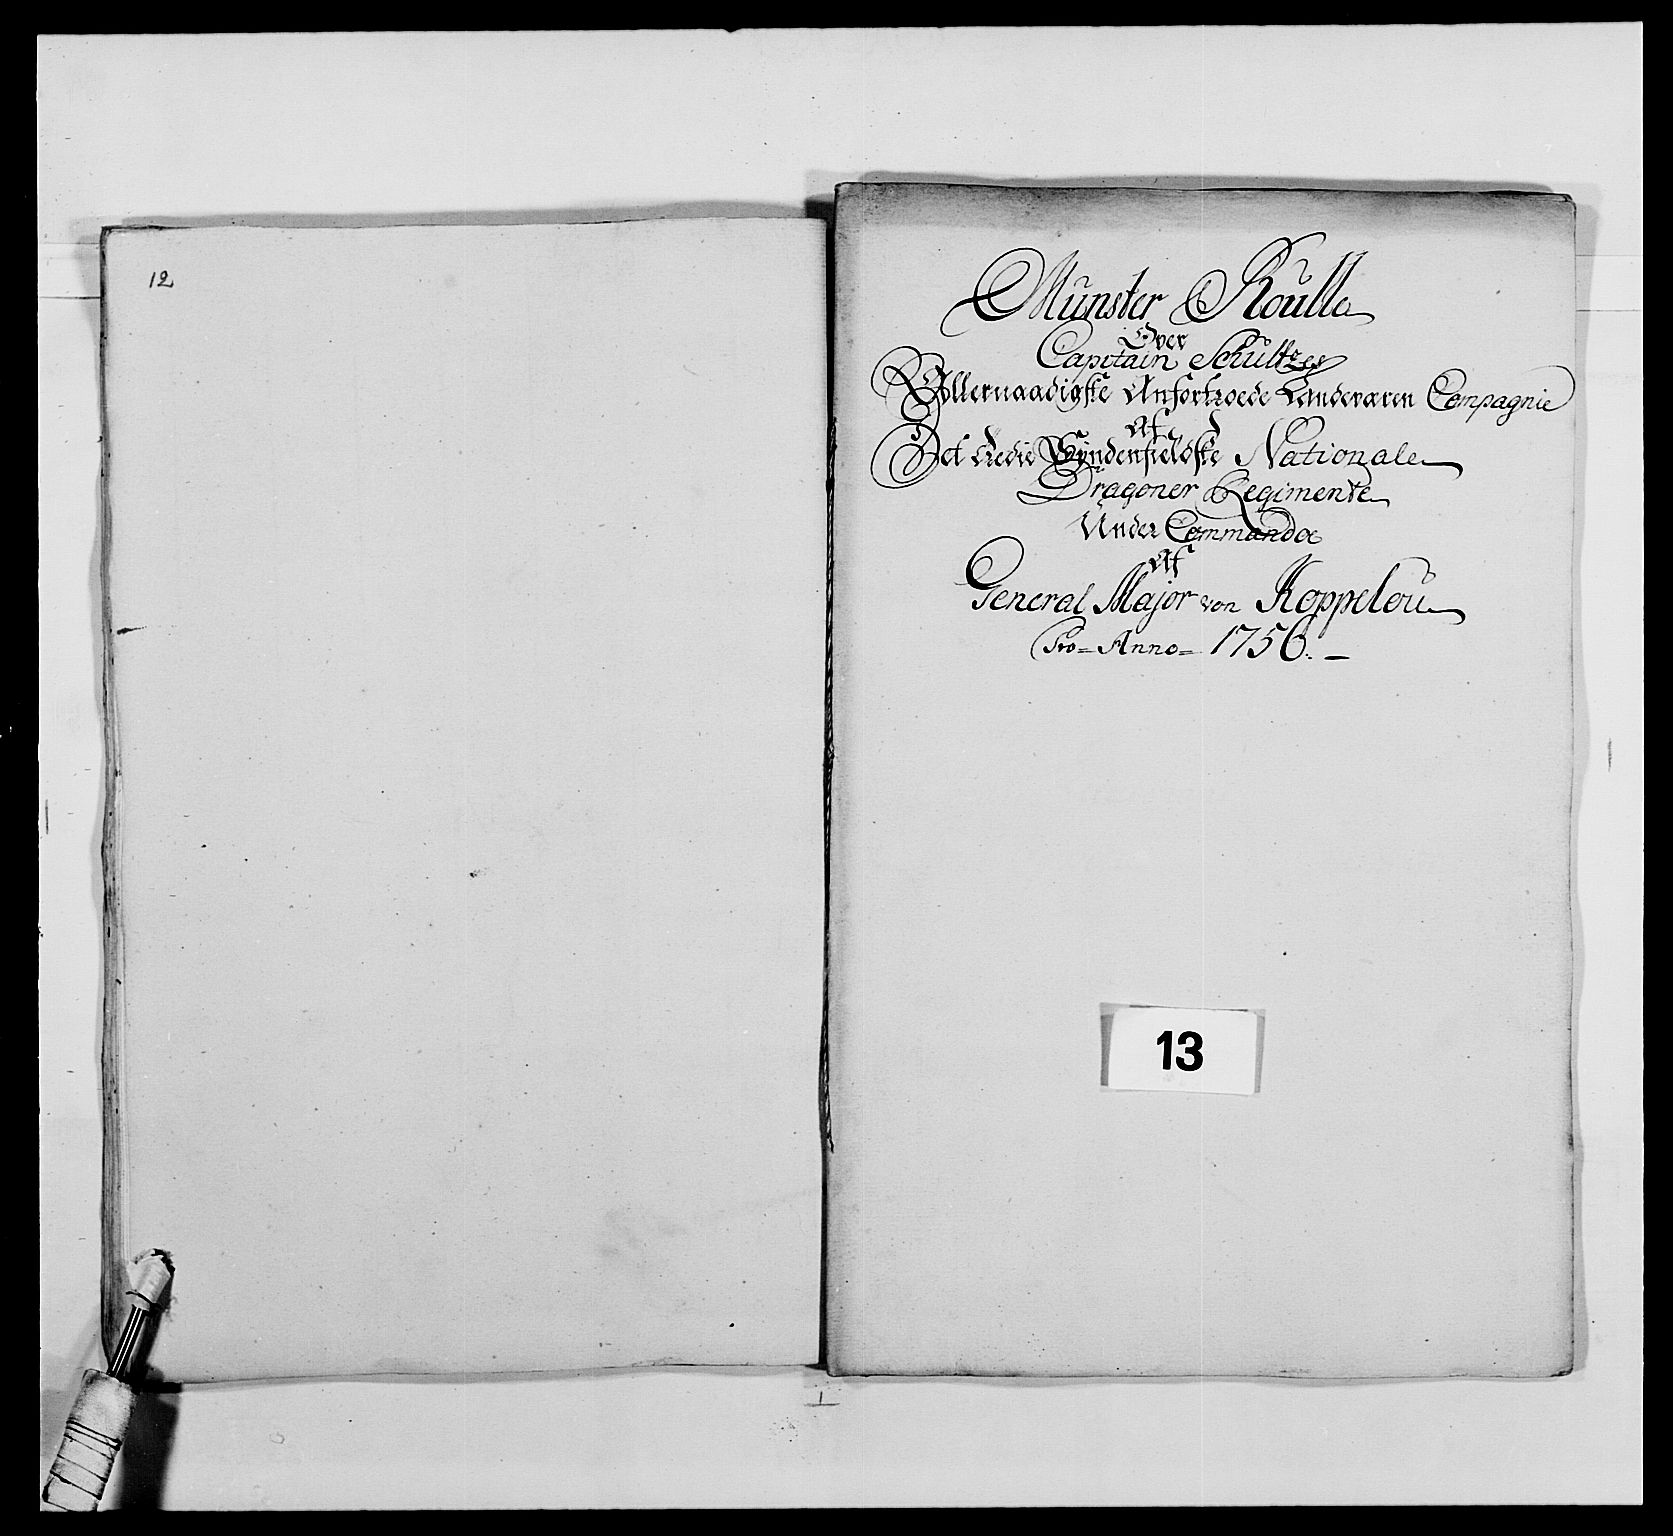 12
Munster Roulle
Over
Capitain Schultzes
Allernaadigste Anfortroede Landeværen Compagnie
Af
Det tredie Syndenfieldske Nationale
Dragoner Regimente
Under Commando
Af
General Major von Koppelou
Pro = Anno = 1756. –
13